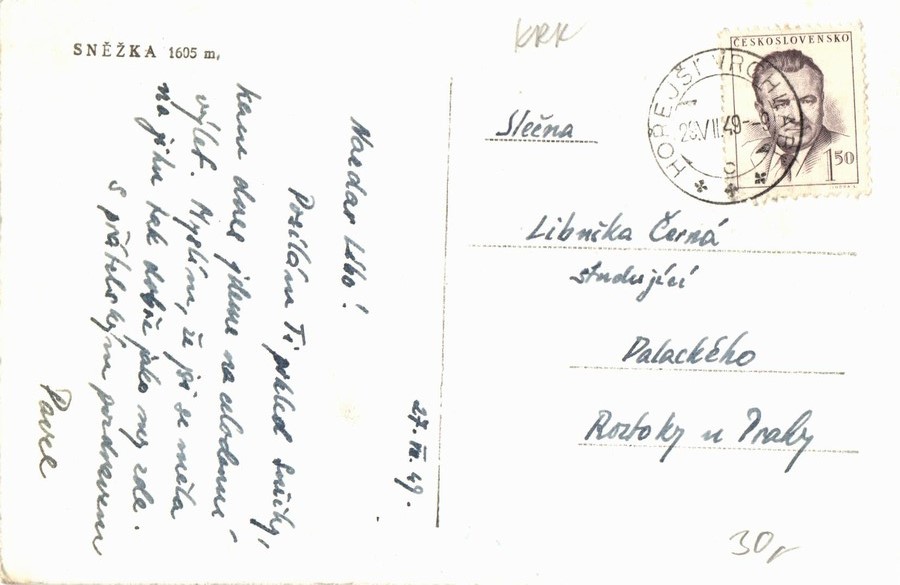 SNĚŽKA 1605 m,
KRK
ČESKOSLOVENSKO
1 50
HOŘEJŠÍ VRCHLABÍ
VII 49
27. VII. 49.
Nazdar Libo!
Posílám Ti pohled Sněžky,
kam dnes jdeme na celodenní
výlet. Myslím, že jsi se měla
na jihu tak dobře jako my zde.
S přátelským pozdravem
Pavel
Slečna
Libuška Černá
studující
Palackého
Roztoky u Prahy
30,-